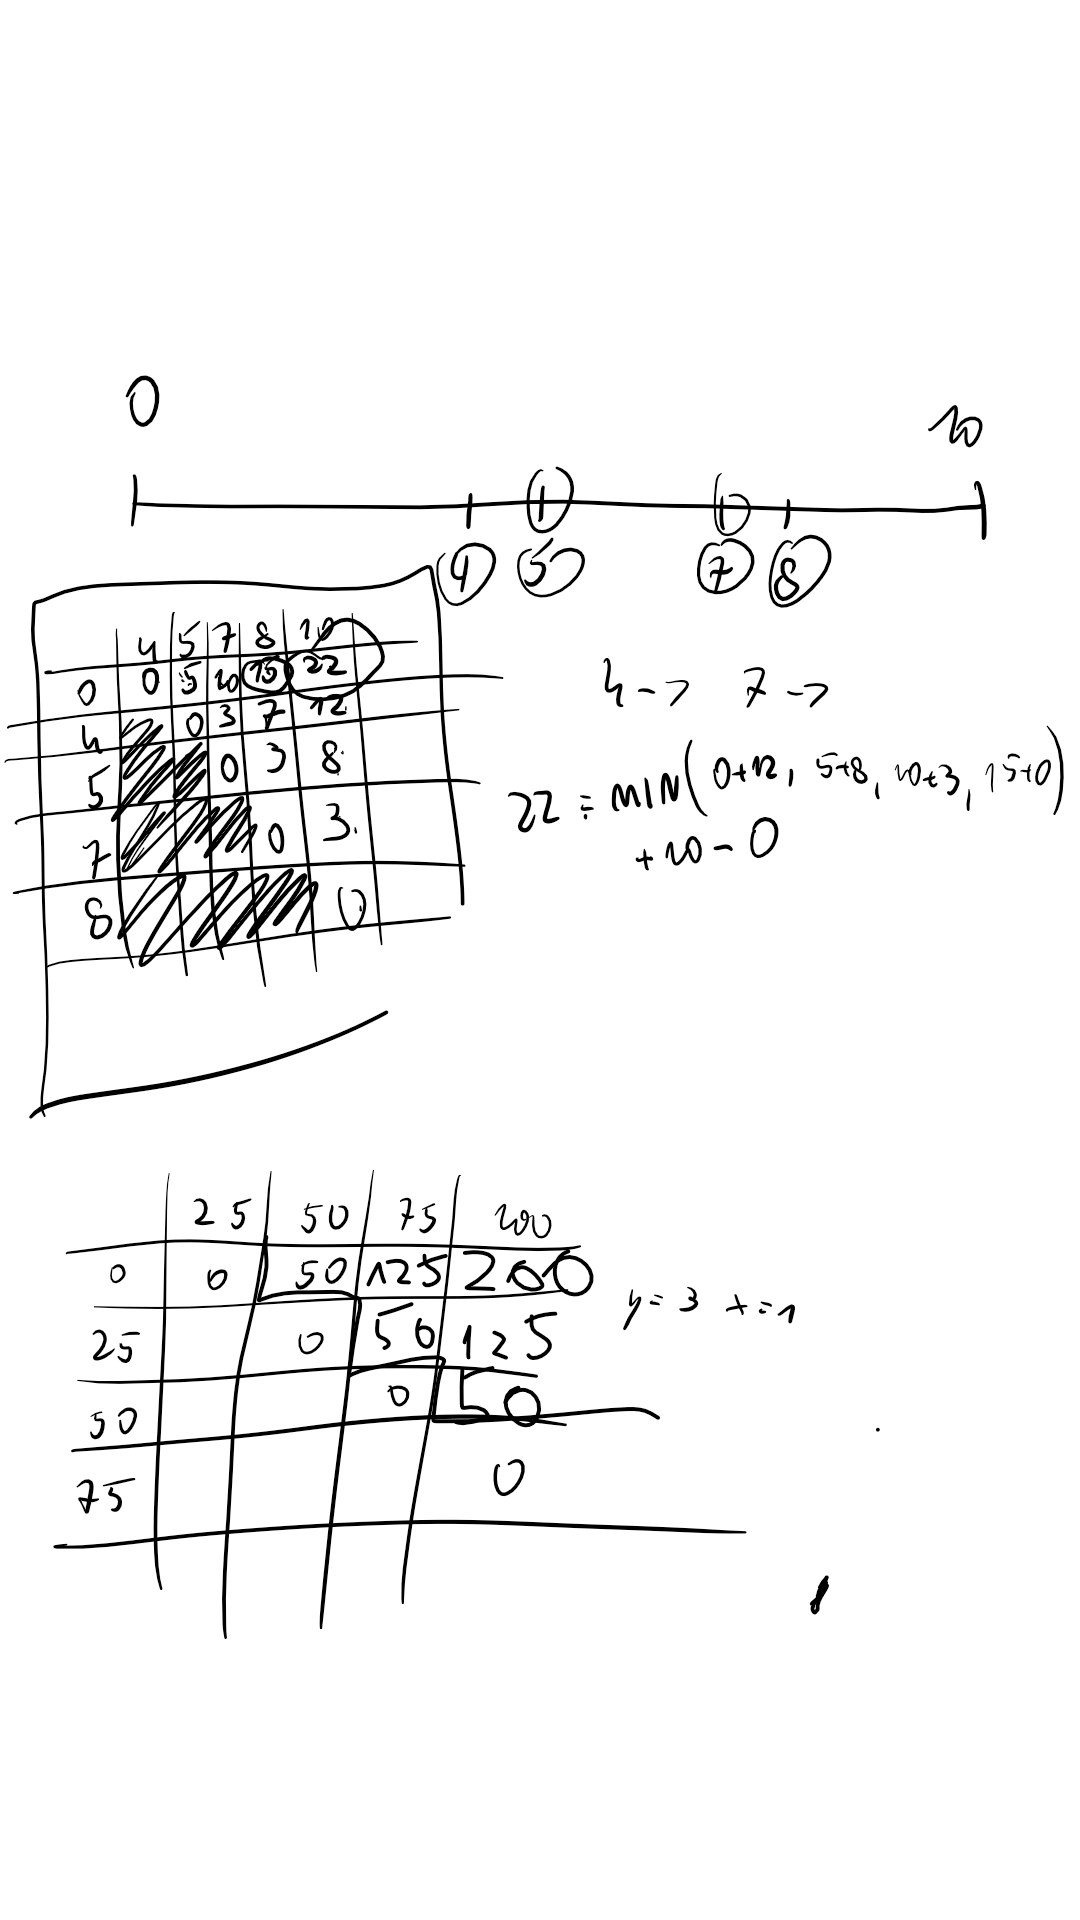 0 10
4 5 7 8
4 5 7 8 10
0 0 5 10 15 22
4 0 3 7 12
5 0 3 8
7 0 3
8 0
4 -> 7 ->
22 = MIN(0+12, 5+8, 10+3, 15+0)
+ 10 - 0
25 50 75 100
0 0 50 125 200
25 0 50 125
50 0 50
75 0
y = 3 x = 1